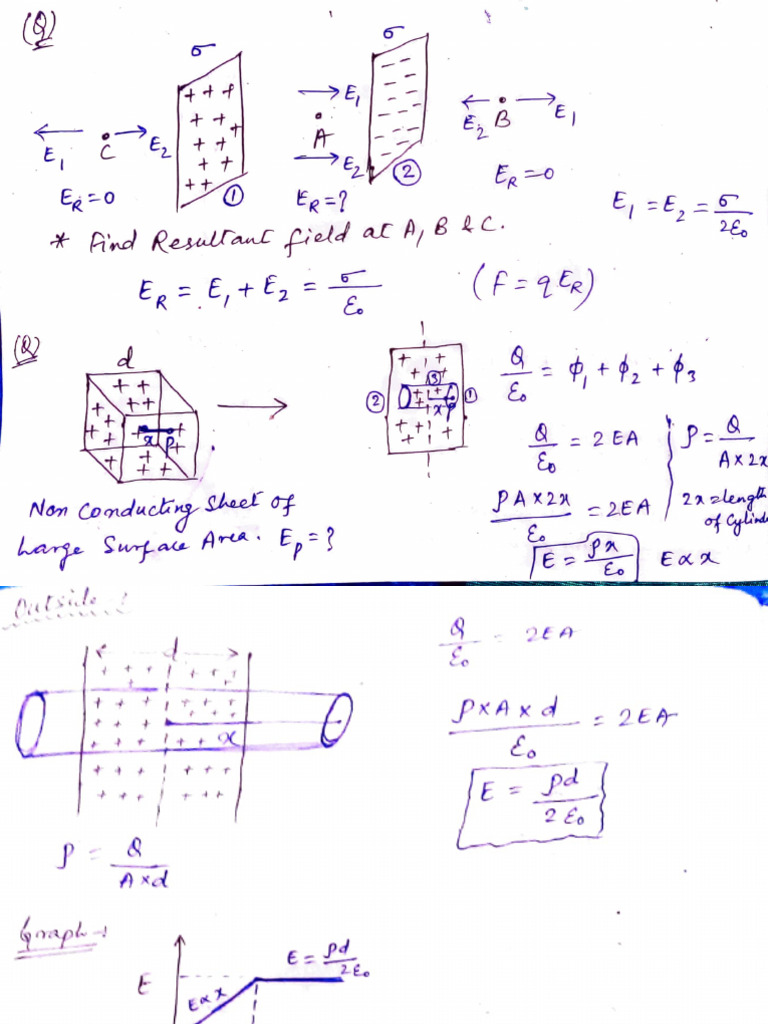 (Q)
σ σ
+ + +
+ + +
+ + +
+ +
E₁ C E₂
E₁
A
E₂
E₂ B E₁
E_R = 0 ① E_R = ? ② E_R = 0
E₁ = E₂ = σ/2ε₀
* Find Resultant field at A, B & C.
E_R = E₁ + E₂ = σ/ε₀ (F = qE_R)
(Q)
d
x P
② ③ ①
x P
Q/ε₀ = ϕ₁ + ϕ₂ + ϕ₃
Q/ε₀ = 2EA
ρ = Q/A×2x
ρA×2x/ε₀ = 2EA
2x = length
of Cylinde
E = ρx/ε₀ E ∝ x
Non Conducting Sheet of
Large Surface Area. E_P = ?
Outside :
d
x
Q/ε₀ = 2EA
ρ×A×d/ε₀ = 2EA
E = ρd/2ε₀
ρ = Q/A×d
Graph :
E
E ∝ x
E = ρd/2ε₀